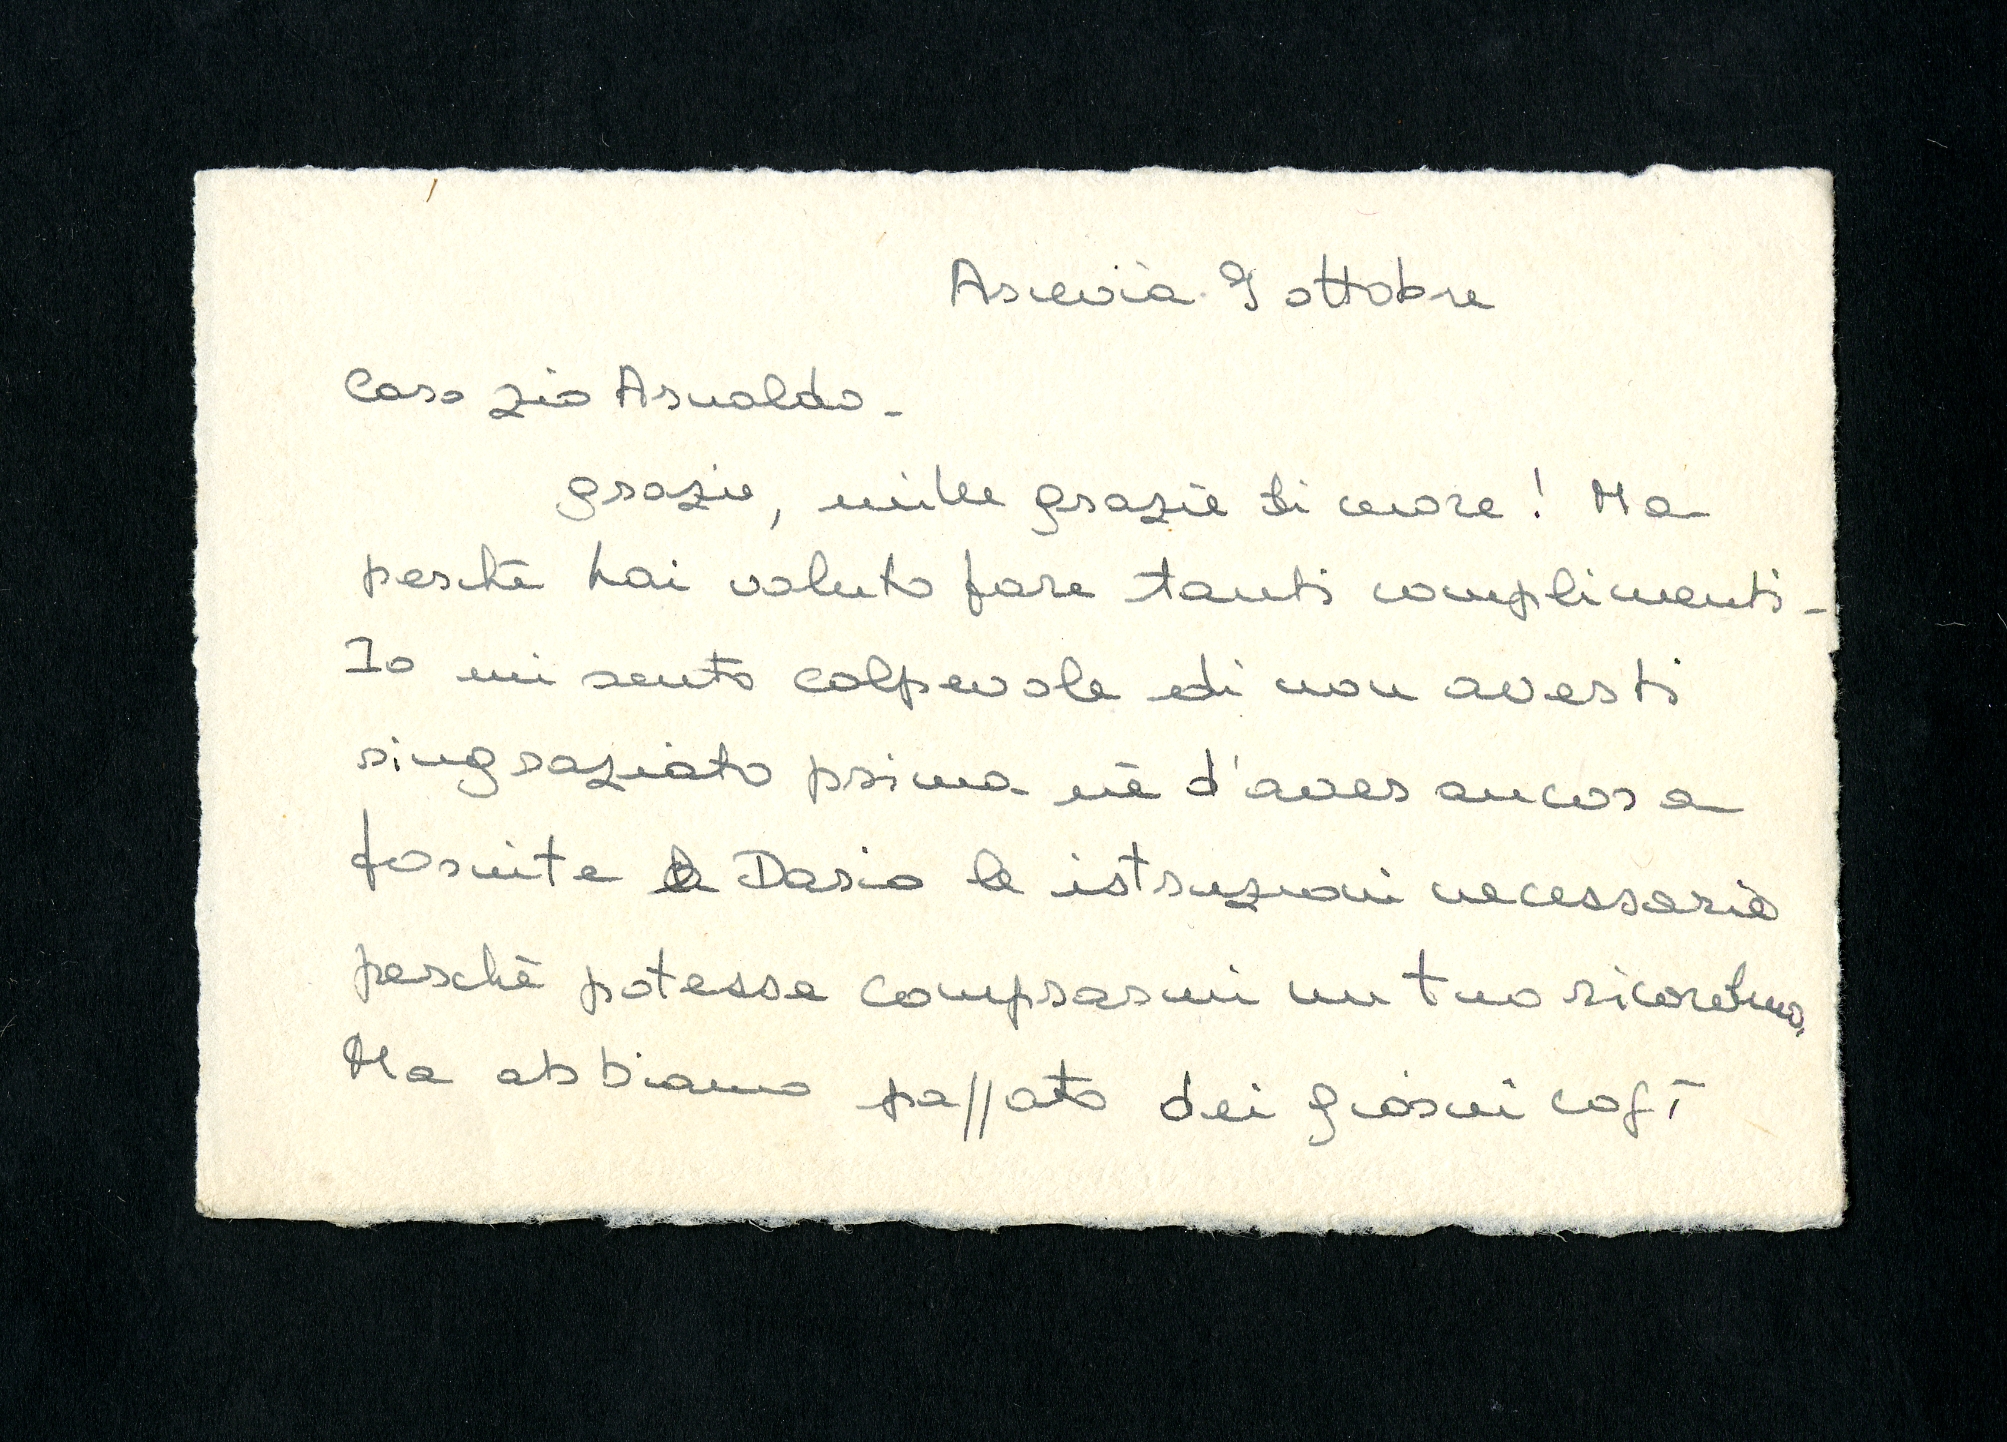 Arcevia 9 ottobre
Caro zio Arnaldo -
grazie, mille grazie di cuore! Ma
perchè hai voluto fare tanti complimenti -
Io mi sento colpevole di non averti
ringraziato prima nè d'aver ancora
fornite a Dario le istruzioni necessarie
perchè potesse comprarmi un tuo ricordino.
Ma abbiamo passato dei giorni così